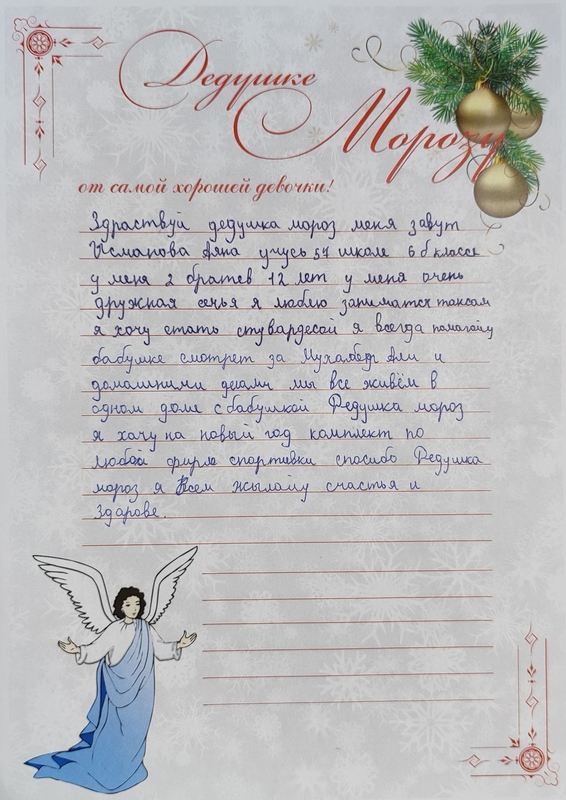 Дедушке
Морозу
от самой хорошей девочки!
Здраствуй дедушка мороз меня завут
Исманова Аяна учусь 57 школе 6 б классе
у меня 2 братев 12 лет у меня очень
дружная семья я люблю заниматся тансам
я хочу стать стувардесой я всегда помагайу
бабушке смотрет за Али и
домашними делами мы все живём в
одном доме с бабушкой Дедушка мороз
я хачу на новый год комплект по
любой фирме спортивки спосибо Дедушка
мороз я Всем жылайу счастья и
здарове.